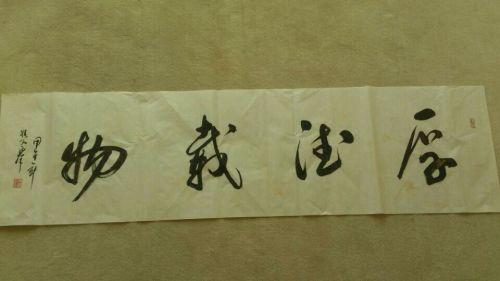 厚德载物
甲午年